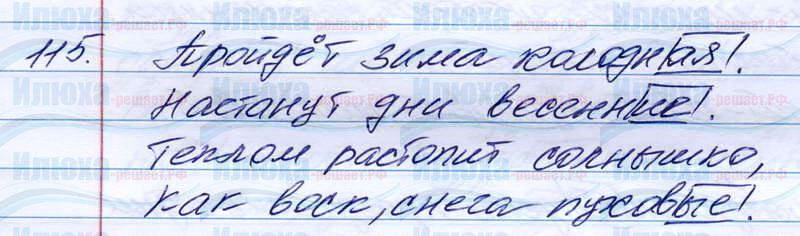 115. Пройдёт зима холодная!.
Настанут дни весенние!.
Теплом растопит солнышко,
как воск, снега пуховые!.